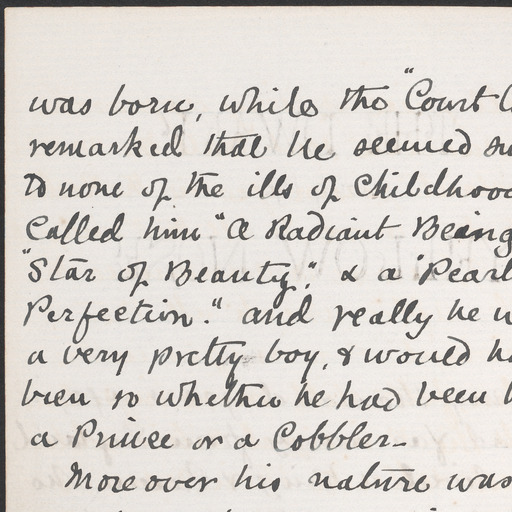 was born, while the "Court
remarked that he seemed
to none of the ills of Childhood
Called him "A Radiant Being
"Star of Beauty", & a "Pearl
Perfection." and really he
a very pretty boy, & would
been so whether he had been
a Prince or a Cobbler.
Moreover his nature was